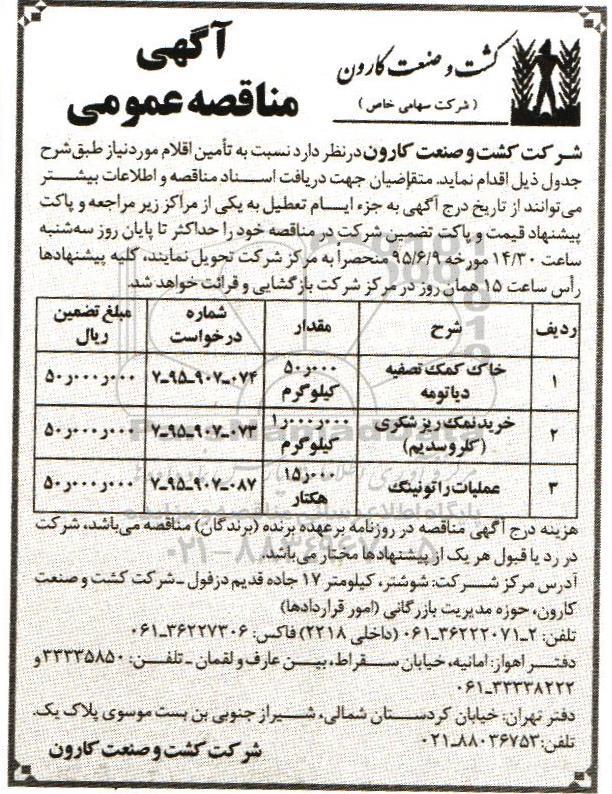 کشت و صنعت کارون
( شرکت سهامی خاص )
آگهی
مناقصه عمومی
شرکت کشت و صنعت کارون در نظر دارد نسبت به تأمین اقلام مورد نیاز طبق شرح
جدول ذیل اقدام نماید. متقاضیان جهت دریافت اسناد مناقصه و اطلاعات بیشتر
می‌توانند از تاریخ درج آگهی به جزء ایام تعطیل به یکی از مراکز زیر مراجعه و پاکت
پیشنهاد قیمت و پاکت تضمین شرکت در مناقصه خود را حداکثر تا پایان روز سه‌شنبه
ساعت ۱۴/۳۰ مورخه ۹۵/۶/۹ منحصراً به مرکز شرکت تحویل نمایند، کلیه پیشنهادها
رأس ساعت ۱۵ همان روز در مرکز شرکت بازگشایی و قرائت خواهد شد.
ردیف شرح مقدار شماره درخواست مبلغ تضمین ریال
۱ خاک کمک تصفیه دیاتومه ۵۰ر۰۰۰ کیلوگرم ۷ـ۹۵ـ۹۰۷ـ۰۷۴ ۵۰ر۰۰۰ر۰۰۰
۲ خرید نمک ریز شکری (کلرو سدیم) ۱ر۰۰۰ر۰۰۰ کیلوگرم ۷ـ۹۵ـ۹۰۷ـ۰۷۳ ۵۰ر۰۰۰ر۰۰۰
۳ عملیات راتونینگ ۱۵ر۰۰۰ هکتار ۷ـ۹۵ـ۹۰۷ـ۰۸۷ ۵۰ر۰۰۰ر۰۰۰
هزینه درج آگهی مناقصه در روزنامه بر عهده برنده (برندگان) مناقصه می‌باشد، شرکت
در رد یا قبول هر یک از پیشنهادها مختار می‌باشد.
آدرس مرکز شرکت: شوشتر، کیلومتر ۱۷ جاده قدیم دزفول ـ شرکت کشت و صنعت
کارون، حوزه مدیریت بازرگانی (امور قراردادها)
تلفن: ۲ـ۳۶۲۲۲۰۷۱ـ۰۶۱ (داخلی ۲۲۱۸) فاکس: ۳۶۲۲۷۳۰۶ـ۰۶۱
دفتر اهواز: امانیه، خیابان سقراط، بین عارف و لقمان ـ تلفن: ۳۳۳۳۵۸۵۰ و
۳۳۳۳۸۲۲۲ـ۰۶۱
دفتر تهران: خیابان کردستان شمالی، شیراز جنوبی بن بست موسوی پلاک یک.
تلفن: ۸۸۰۳۶۷۵۳ـ۰۲۱
شرکت کشت و صنعت کارون